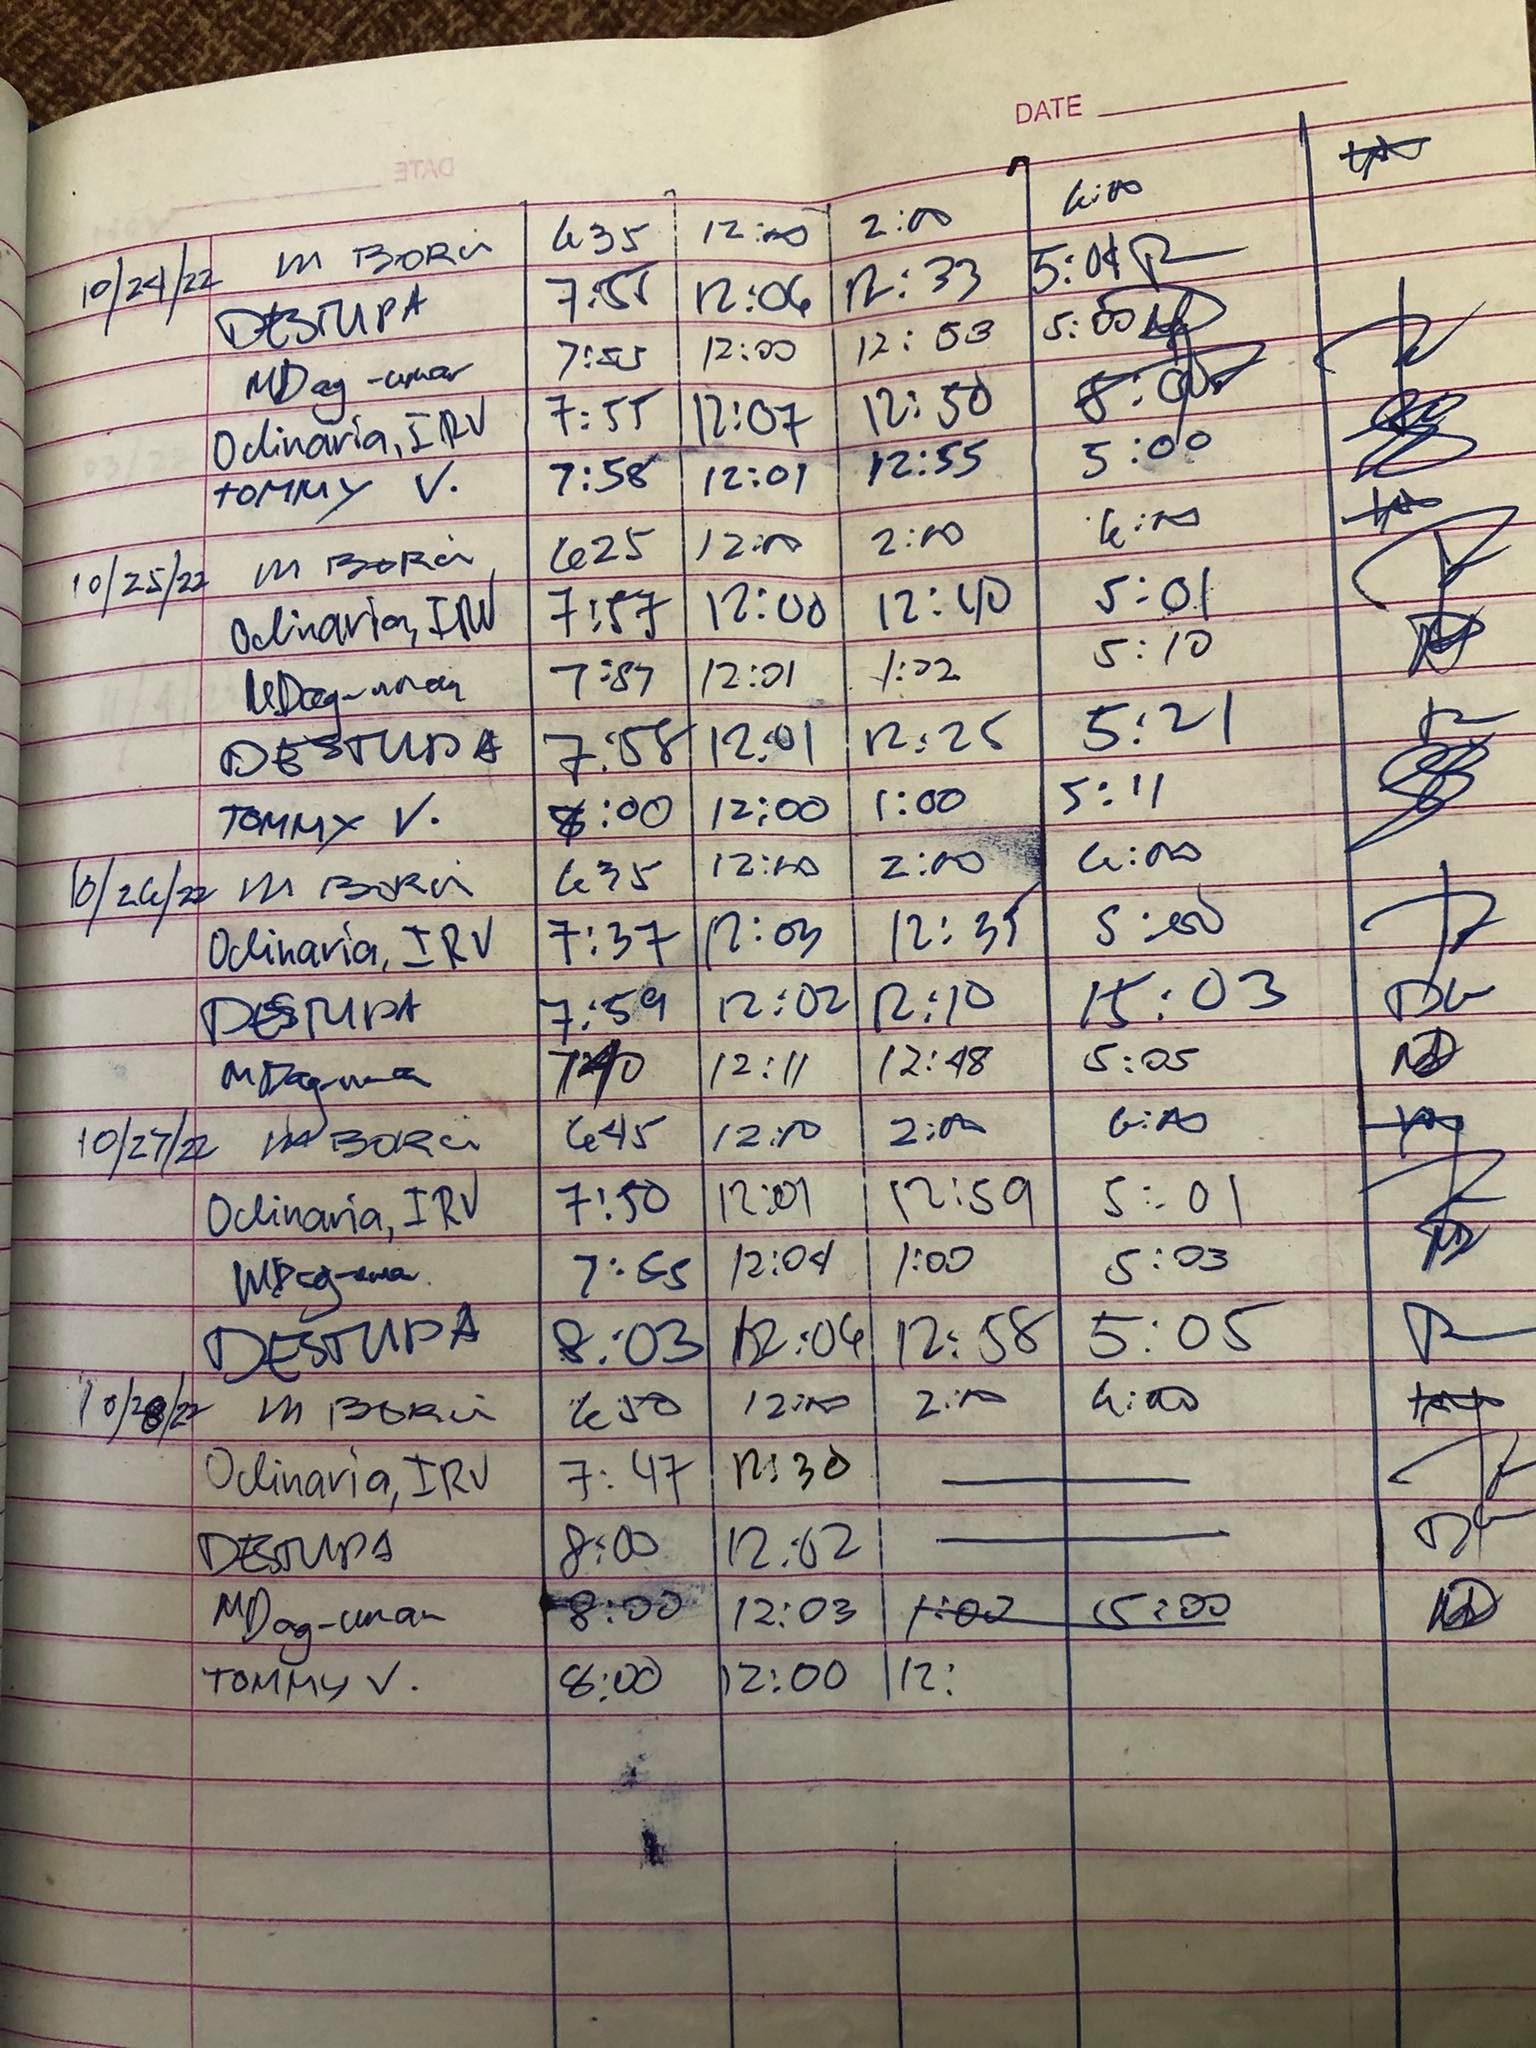 DATE
10/24/22 M BORCI 635 12:00 2:00 6:00
DESTUPA 7:55 12:06 12:33 5:04
MDag-uman 7:55 12:00 12:53 5:00
Oclinaria, IRV 7:55 12:07 12:50 5:00
TOMMY V. 7:58 12:01 12:55 5:00
10/25/22 M BORCI 625 12:00 2:00 6:00
Oclinaria, IRV 7:57 12:00 12:40 5:01
MDag-uman 7:57 12:01 1:02 5:10
DESTUPA 7:58 12:01 12:25 5:21
TOMMY V. 8:00 12:00 1:00 5:11
10/26/22 M BORCI 635 12:00 2:00 6:00
Oclinaria, IRV 7:37 12:03 12:35 5:00
DESTUPA 7:59 12:02 12:10 15:03
MDag-uman 12:11 12:48 5:05
10/27/22 M BORCI 645 12:00 2:00 6:00
Oclinaria, IRV 7:50 12:01 12:59 5:01
MDag-uman 7:55 12:04 1:00 5:03
DESTUPA 8:03 12:06 12:58 5:05
10/28/22 M BORCI 650 12:00 2:00 6:00
Oclinaria, IRV 7:47 12:30
DESTUPA 8:00 12:02
MDag-uman 8:00 12:03 1:00 5:00
TOMMY V. 8:00 12:00 12: